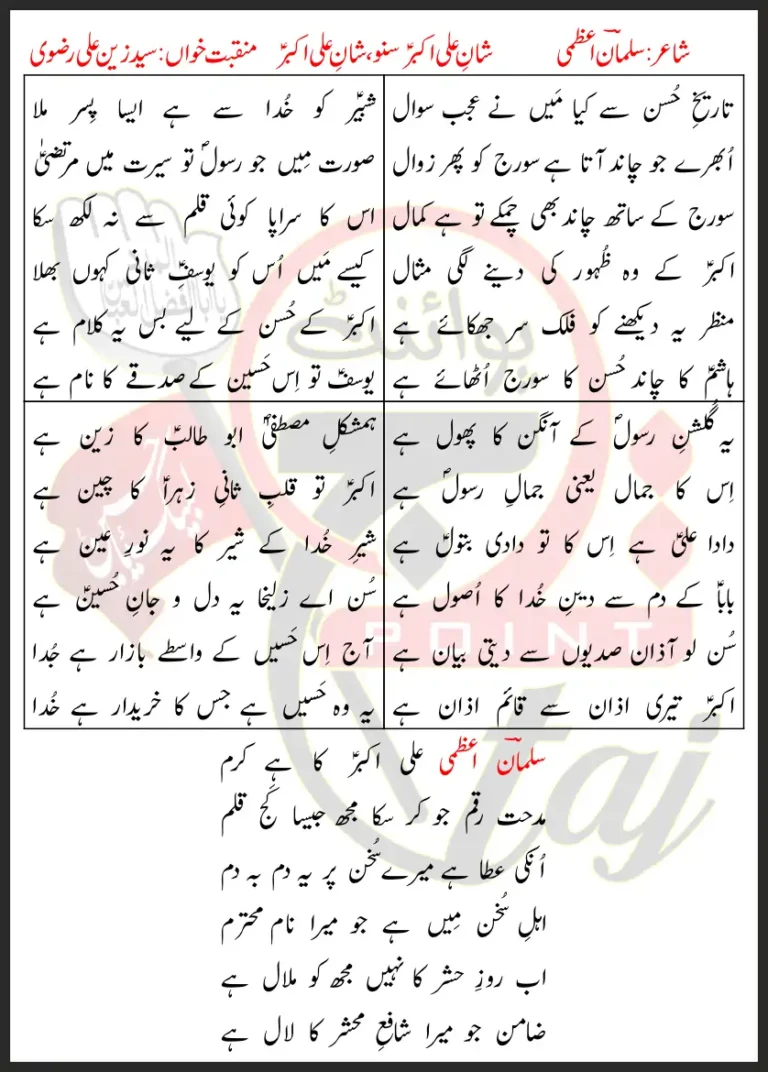 شاعر: سلمانؔ اعظمی شانِ علی اکبرؑ سنو، شانِ علی اکبرؑ منقبت خواں: سید زین علی رضوی
تاریخِ حُسن سے کیا مَیں نے عجب سوال
اُبھرے جو چاند آتا ہے سورج کو پھر زوال
سورج کے ساتھ چاند بھی چمکے تو ہے کمال
اکبرؑ کے وہ ظُہور کی دینے لگی مثال
منظر یہ دیکھنے کو فلک سر جھکائے ہے
ہاشمؑ کا چاند حُسن کا سورج اُٹھائے ہے
شبیرؑ کو خُدا سے ہے ایسا پِسر ملا
صورت مِیں جو رسولؐ تو سیرت میں مرتضیٰؑ
اس کا سراپا کوئی قلم سے نہ لکھ سکا
کیسے مَیں اُس کو یوسفِؑ ثانی کہوں بھلا
اکبرؑ کے حُسن کے لیے بس یہ کلام ہے
یوسفؑ تو اِس حَسین کے صدقے کا نام ہے
یہ گُلشنِ رسولؐ کے آنگن کا پھول ہے
اِس کا جمال یعنی جمالِ رسولؐ ہے
دادا علیؑ ہے اِس کا تو دادی بتولؑ ہے
باباؑ کے دم سے دینِ خُدا کا اُصول ہے
سُن لو آذان صدیوں سے دیتی بیان ہے
اکبرؑ تیری اذان سے قائم اذان ہے
ہمشکلِ مصطفیٰؐ ابو طالبؑ کا زین ہے
اکبرؑ تو قلبِ ثانیِ زہراؑ کا چین ہے
شیرِ خُدا کے شیر کا یہ نورِ عین ہے
سُن اے زلیخا یہ دل و جانِ حُسینؑ ہے
آج اِس حَسیں کے واسطے بازار ہے جُدا
یہ وہ حَسیں ہے جس کا خریدار ہے خُدا
سلمانؔ اعظمی علی اکبرؑ کا ہے کرم
مدحت رقم جو کر سکا مجھ جیسا کَج قلم
اُنکی عطا ہے میرے سُخن پر یہ دم بہ دم
اہلِ سُخن مِیں ہے جو میرا نام محترم
اب روزِ حشر کا نہیں مجھ کو ملال ہے
ضامن جو میرا شافعِ محشر کا لال ہے
پوائنٹ
POINT
taj